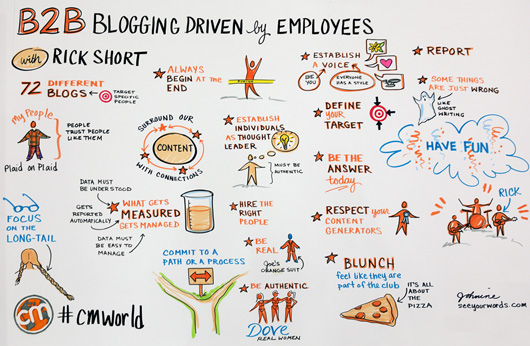 B2B BLOGGING DRIVEN by EMPLOYEES
with RICK SHORT
72 DIFFERENT
BLOGS
TARGET
SPECIFIC
PEOPLE
My People
PEOPLE
TRUST PEOPLE
LIKE THEM
Plaid on Plaid
ALWAYS
BEGIN AT THE
END
SURROUND OUR
CONTENT
WITH CONNECTIONS
ESTABLISH
INDIVIDUALS
AS THOUGHT
LEADER
MUST BE
AUTHENTIC
ESTABLISH
A VOICE
BE
YOU
EVERYONE
HAS A STYLE
DEFINE
your
TARGET
BE THE
ANSWER
today
REPORT
SOME THINGS
ARE JUST WRONG
LIKE
GHOST
WRITING
HAVE FUN
RICK
FOCUS
ON THE
LONG-TAIL
DATA MUST
BE UNDERSTOOD
GETS
REPORTED
AUTOMATICALLY
WHAT GETS
MEASURED
GETS MANAGED
DATA MUST
BE EASY TO
MANAGE
HIRE THE
RIGHT
PEOPLE
RESPECT your
CONTENT
GENERATORS
COMMIT TO A
PATH OR A PROCESS
BE
REAL
JOE'S
ORANGE SUIT
BE AUTHENTIC
Dove
REAL WOMEN
BLUNCH
feel like they are
part of the club
IT'S ALL
ABOUT
THE
PIZZA
cm
#cmworld
seeyourwords.com